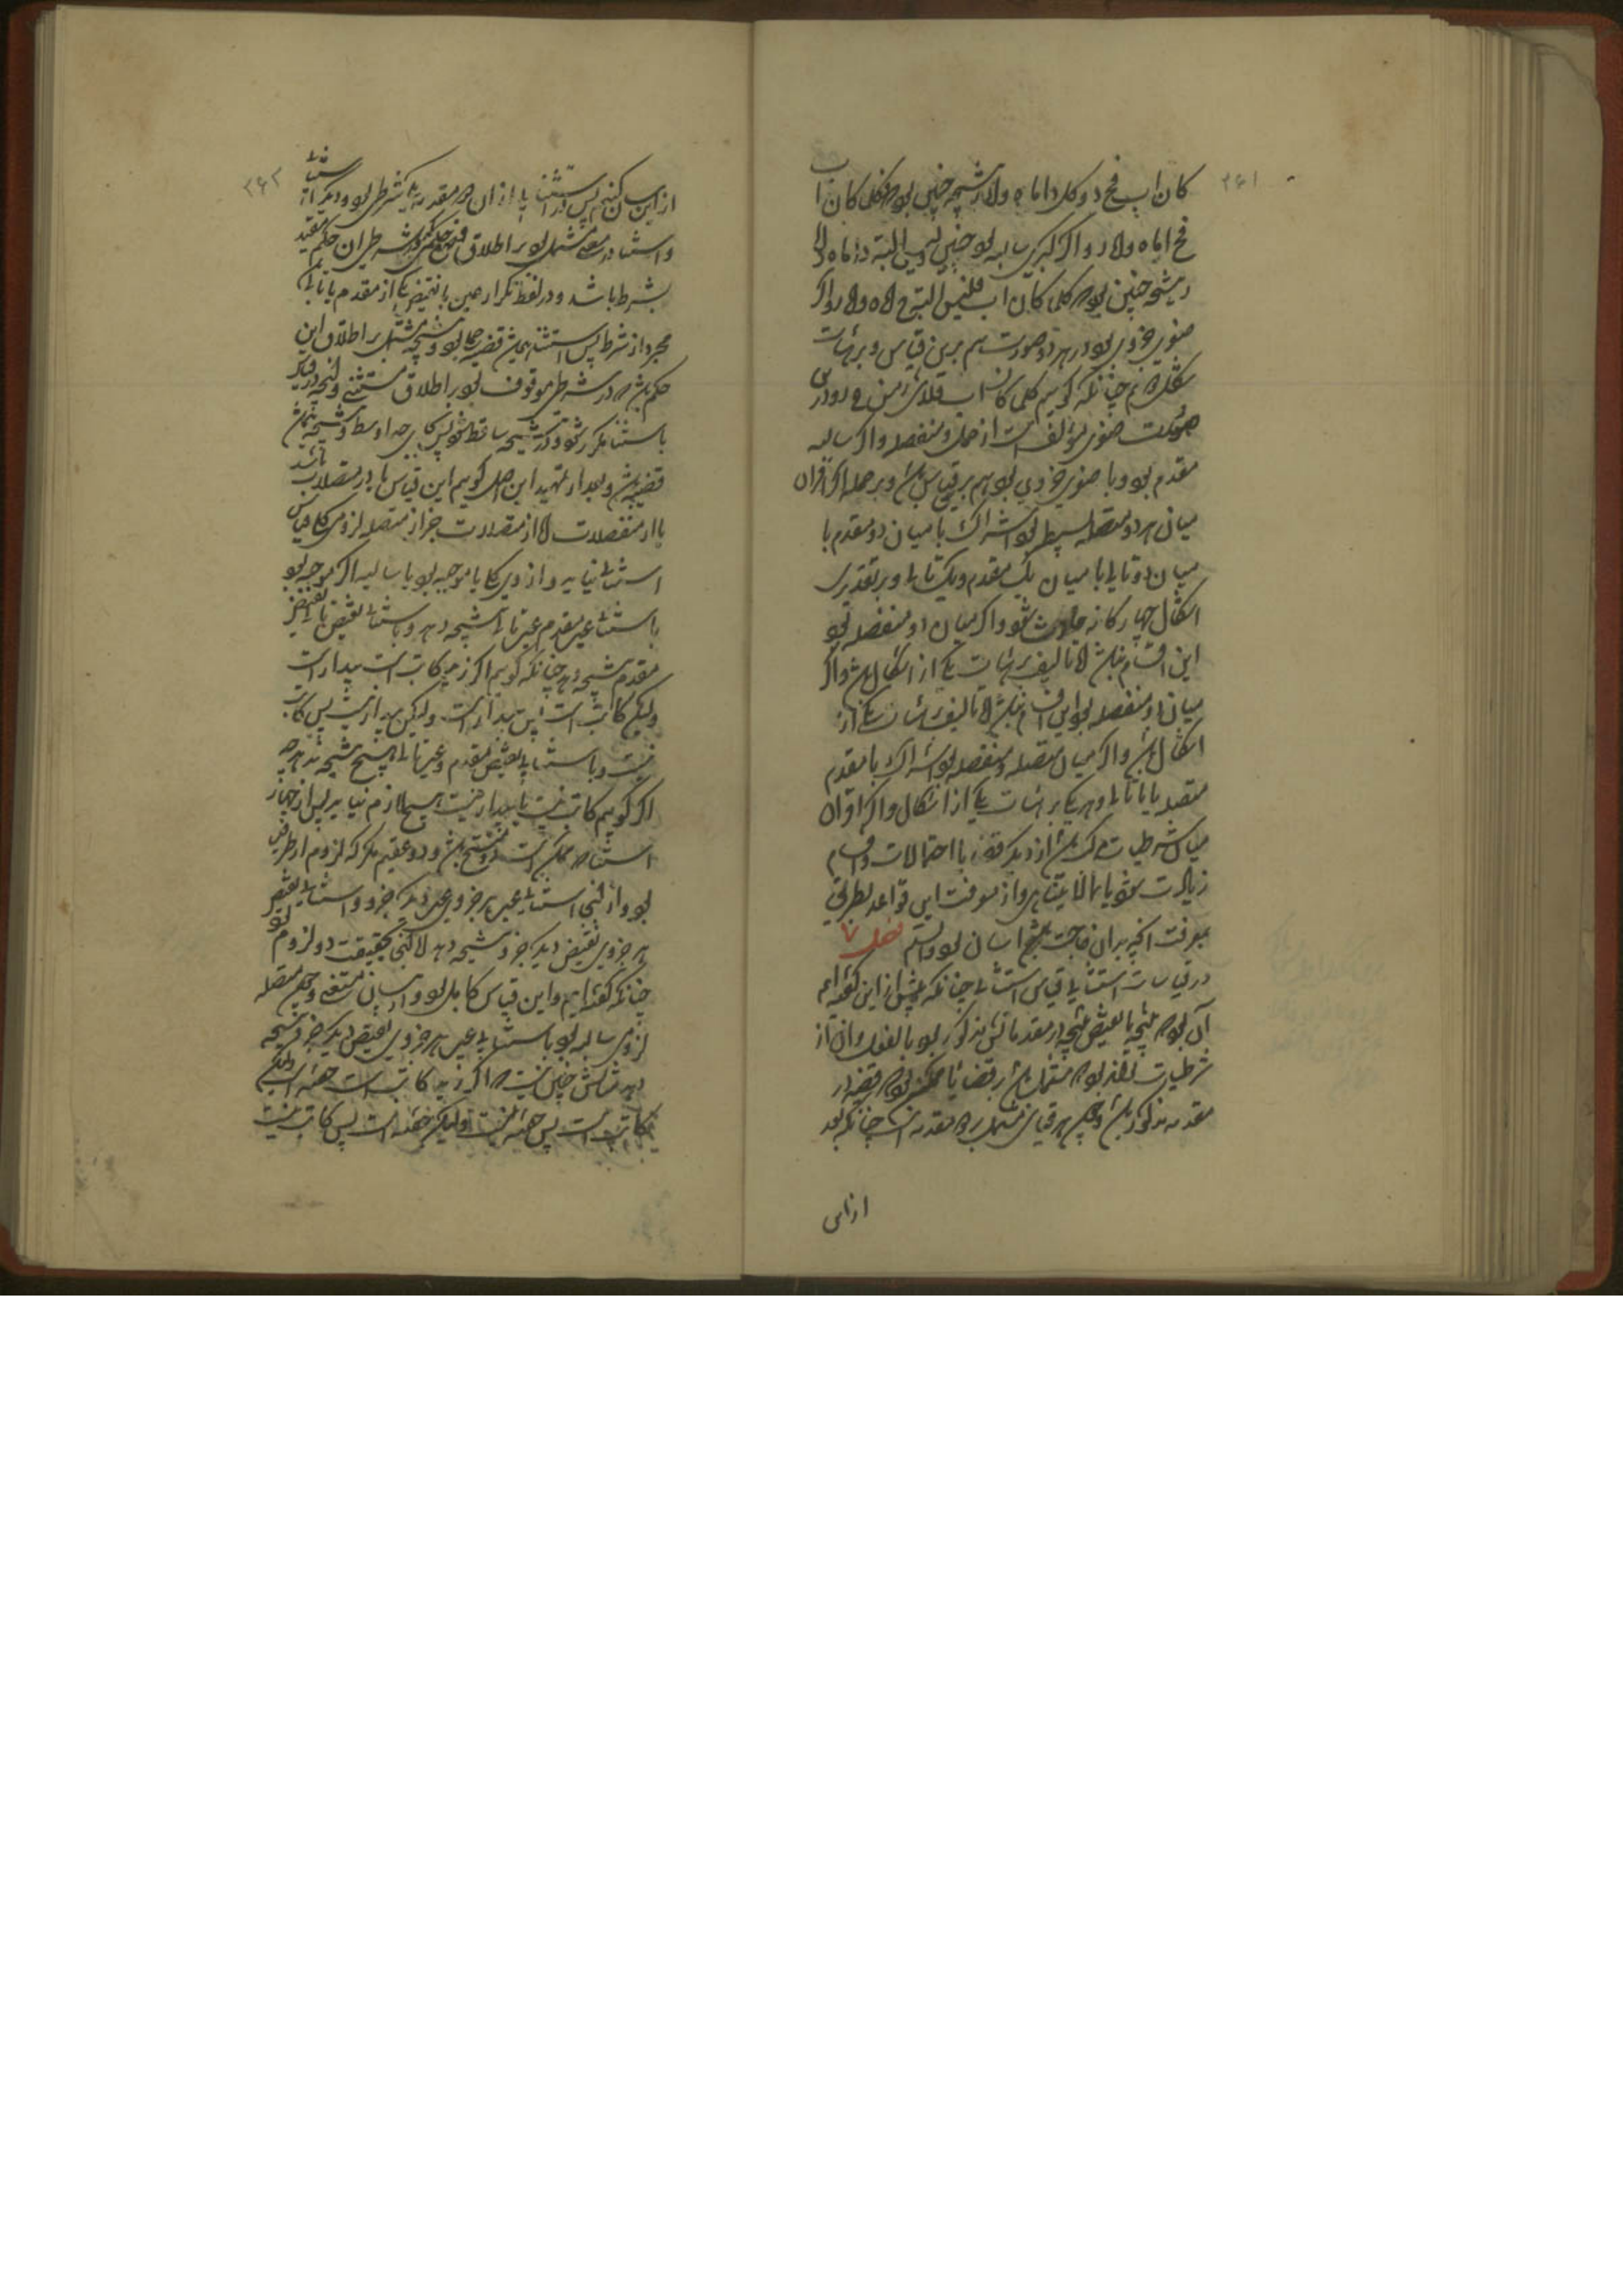 ۲۶۱
کان اب فج د و کل د اما ه و لا ر نتیجه چنین بود که کلما کان اب
فج اما ه و لا ر و اگر کبری سالبه بود چنین لیس البته د اما ه و لا
ر نتیجه چنین بود که کلما کان اب فلیس البته ج اما ه و لا ر و اگر
صغری جزوی بود در هر دو صورت هم برین قیاس و بر هیات
شکل هم چنانکه گوییم کلما کان اب فلا من
صورت صغری مؤلف است از حملی و منفصله و اگر سالبه
مقدم بود و یا صغری جزوی بود هم برین قیاس باشد و بر جمله اگر اقتران
میان هر دو متصله بسیط بود اشتراک یا میان دو مقدم یا
میان دو تالی یا میان یک مقدم و یک تالی و بر تقدیری
اشکال چهارگانه حادث شود و اگر میان دو منفصله بود
این اقسام نباشد الا تالیف بر هیات یکی از اشکال باشد و اگر
میان دو منفصله بود این اقسام نباشد الا تالیف بر هیات یکی از
اشکال باشد و اگر میان متصله و منفصله بود اشتراک با مقدم
متصله یا با تالی او و هر یکی بر هیات یکی از اشکال و اگر اقتران
میان شرطیات مرکب باشد از دیگر قضایا احتمالات و اقسام
زیادت شود یا مالایتناهی و از معرفت این قواعد بطریقی
معرفت آنچه بدان حاجت باشد آسان بود والسلم فصل ۷
در قیاسات استثنایی قیاس استثنایی چنانکه پیش از این گفته‌ایم
آن بود که نتیجه یا نقیض نتیجه در مقدماتش مذکور بود بالفعل و آن از
شرطیات تواند بود که مشتمل باشد بر قضایا ممکن بود که قضیه در
مقدمه مذکور باشد و چون هر قیاس مشتمل بر دو مقدمه است چنانکه بعد
از این
۲۶۲
از این بیان کنیم پس در استثنایی از آن دو مقدمه یکی شرطی بود و دیگر استثنا
و استثنا در معنی مشتمل بود بر اطلاق حکمی که در شرطی آن حکم مقید
بشرط باشد و در لفظ تکرار عین یا نقیض یکی از مقدم یا تالی
مجرد از شرط پس استثنا همیشه قضیه حملی بود و نتیجه مشتمل بر اطلاق این
حکم باشد که در شرطی موقوف بود بر اطلاق مستثنی و آنچه در قیاس
باستثنا مکرر شود و در نتیجه ساقط شود پس بجای حد اوسط و نتیجه همان
قضیه باشد و بعد از تمهید این اصل گوییم این قیاس یا از متصلات باشد
یا از منفصلات اما از متصلات جز از متصله لزومی کلی قیاس
استثنایی نیاید و از وی کلی یا موجبه بود یا سالبه اگر موجبه بود
باستثناء عین مقدم عین تالی نتیجه دهد و باستثناء نقیض تالی نقیض
مقدم نتیجه دهد چنانکه گوییم اگر زید کاتب است بیدار است
ولیکن کاتب است پس بیدار است ولیکن بیدار نیست پس کاتب
نیست و باستثنای نقیض مقدم و عین تالی هیچ نتیجه ندهد چه
اگر گوییم کاتب نیست یا بیدار نیست هیچ لازم نیاید پس از چهار
استثنا که ممکن است دو منتج باشد و دو عقیم مگر که لزوم از طرفین
بود و آنجا استثناء عین هر جزوی عین دیگر جزو و استثناء نقیض
هر جزوی نقیض دیگر جزو نتیجه دهد الا آنجا بحقیقت دو لزوم بود
چنانکه گفته‌ایم و این قیاس کامل بود و از بیان مستغنی و چون متصله
لزومی سالبه بود باستثنای عین هر جزوی نقیض دیگر جزو نتیجه
دهد مثالش چنین نیست که اگر زید کاتب است خفته است ولیکن
کاتب است پس خفته نیست ولیکن خفته است پس کاتب نیست